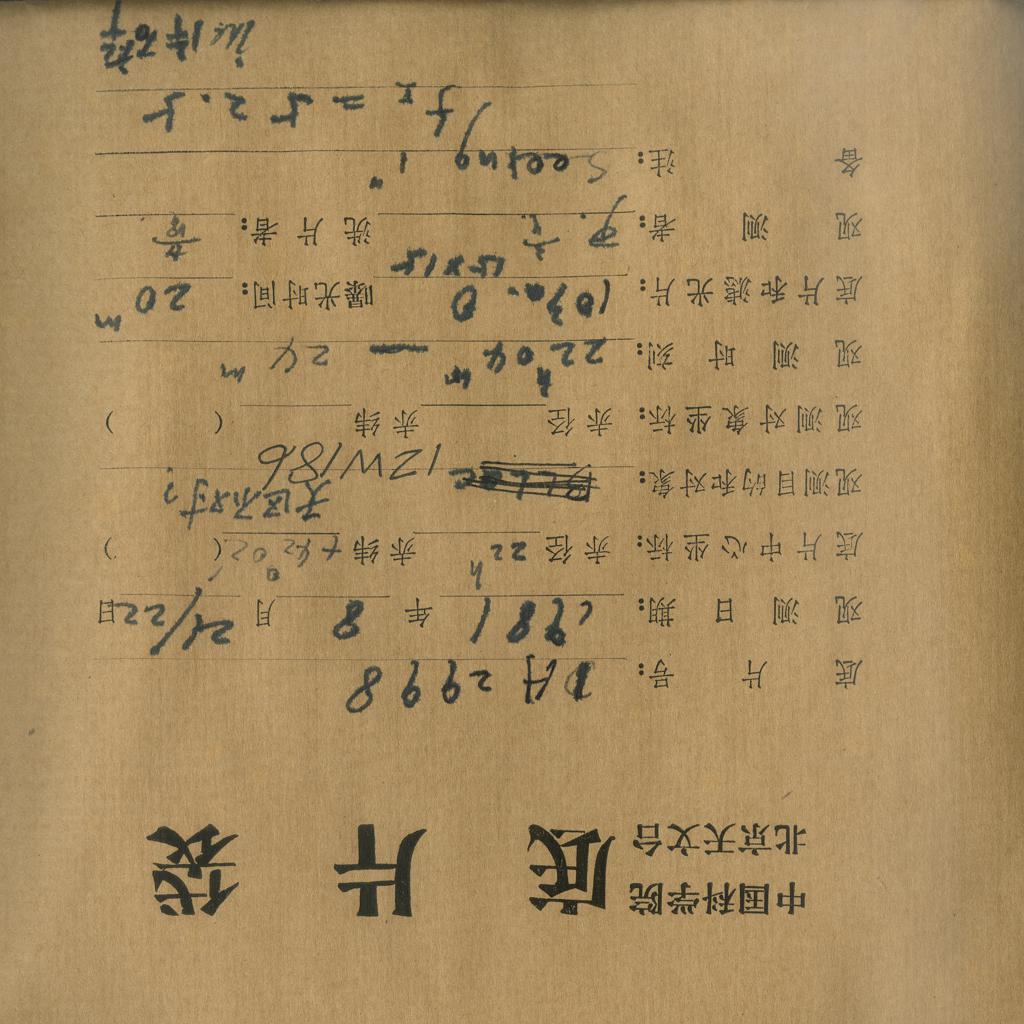 中国科学院
北京天文台
底片袋
底片号: DA2998
观测日期: 1981年8月21/22日
底片中心坐标: 赤经 22h 赤纬 +42°02′ ( )
天区不对?
观测目的和对象: BLLac IZW186
观测对象坐标: 赤经 赤纬 ( )
观测时刻: 22h04m — 24m
底片和滤光片: 103a-O 15×15 曝光时间: 20m
观测者: 洗片者:
备注: Seeing 1"
fx = 52.5